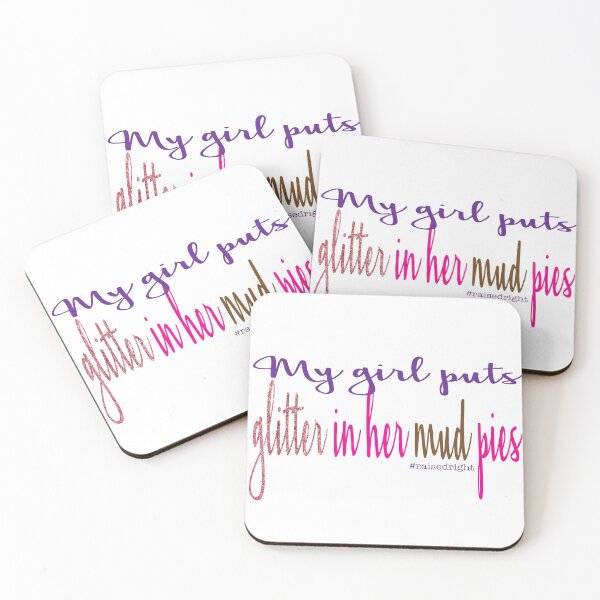 My girl puts
glitter mud
My girl puts
glitter in her mud pies
#raisedright
My girl puts
glitter in her mud pies
My girl puts
glitter in her mud pies
#raisedright